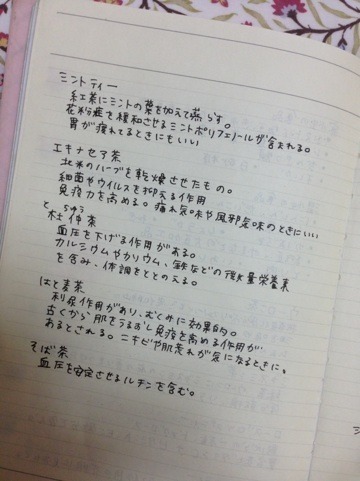 ミントティー
紅茶にミントの葉を加えて蒸らす。
花粉症を緩和させるミントポリフェノールが含まれる。
胃が疲れてるときにもいい
エキナセア茶
北米のハーブを乾燥させたもの。
細菌やウイルスを抑える作用
免疫力を高める。疲れ気味や風邪気味のときにいい
と ちゅう
杜仲茶
血圧を下げる作用がある。
カルシウムやカリウム、鉄などの微量栄養素
を含み、体調をととのえる。
はと麦茶
利尿作用があり、むくみに効果的。
古くから肌をうるおし免疫を高める作用が
あるとされる。ニキビや肌荒れが気になるときに。
そば茶
血圧を安定させるルチンを含む。